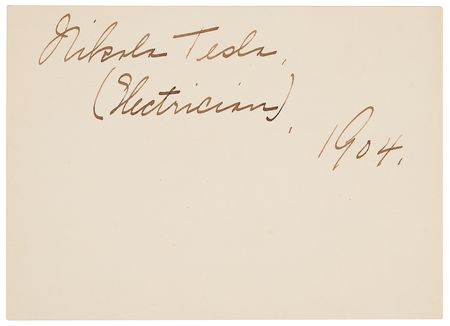 Nikola Tesla,
(Electrician),
1904.